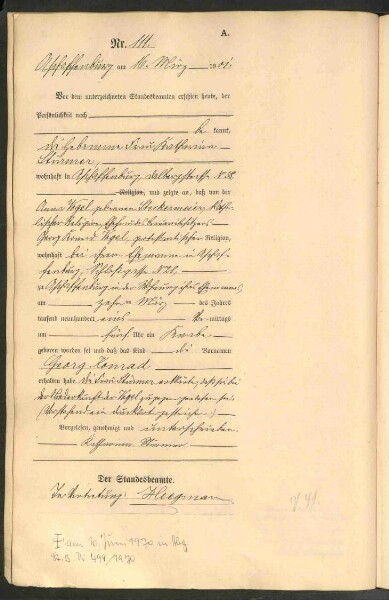 A.
Nr. 111.
Aschaffenburg am 16. März 1901
Vor dem unterzeichneten Standesbeamten erschien heute, der
Persönlichkeit nach
be kannt,
die Hebamme Frau Katharina
Stürmer,
wohnhaft in Aschaffenburg
Religion, und zeigte an, daß von der
Anna Vogel, geborenen
lischer Religion, Ehefrau des
Georg Konrad Vogel, protestantischer Religion,
wohnhaft bei ihrem Ehemanne in Aschaf-
fenburg,
zu Aschaffenburg in der Wohnung ihres Ehemannes,
am zehn März des Jahres
tausend neunhundert eins Vormittags
um fünf Uhr ein Knabe
geboren worden sei und daß das Kind die Vornamen
Georg Konrad
erhalten habe. die Frau Stürmer erklärte, daß sie bei
der Niederkunft der Vogel zugegen gewesen sei.
Vorstehend ein Druckwort gestrichen.
Vorgelesen, genehmigt und unterschrieben
Katharina Stürmer
Der Standesbeamte.
In Vertretung:
am 6. Juni 1970 in
1970